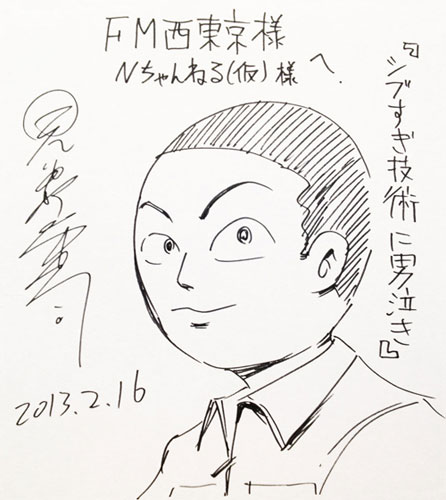 FM西東京様
Nちゃんねる(仮)様へ.
『シブすぎ技術に男泣き』
2013.2.16